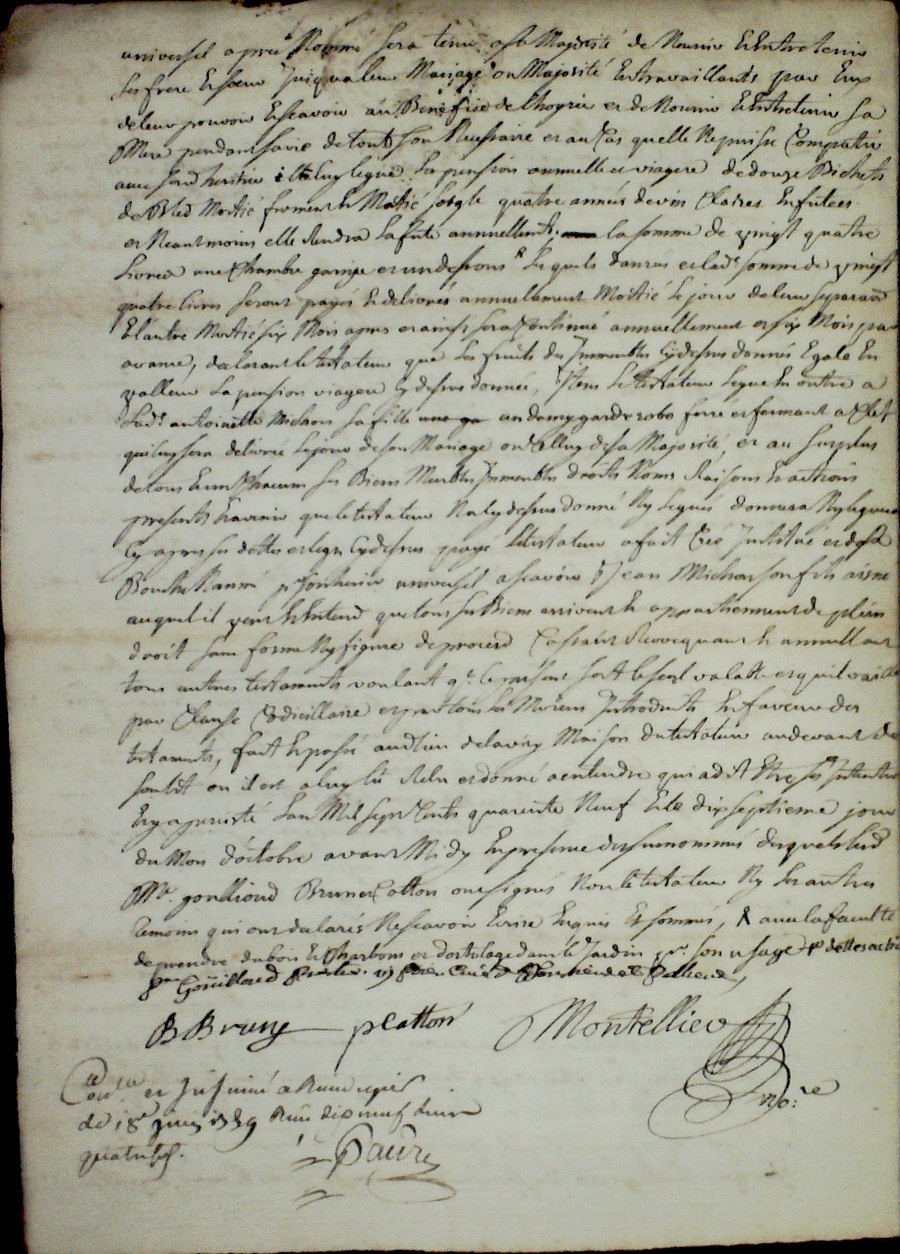 universel apres nommé sera tenu de Nourir Et Entretenir
ses frere Et soeur Jusqua leur Mariage ou Majorité En travaillants par Eux
de leur pouvoir Et scavoir au Benefice de lhoyrie et de Nourir Et Entretenir sa
Mere pendant sa vie de tout son Necessaire et au Cas quelle Ne puisse Compatir
avec sond heritier il luy legue la pension annuelle et viagere de douze Bichets
de Bled Moitié froment Et Moitié soigle quatre années de vin Claires En futées
et Neantmoins elle Rendra la fute annuellemt. la somme de vingt quatre
Livres une Chambre garnie et un dessous lesquels danrées et lad. somme de vingt
quatre livres seront payés Et delivrés annuellement Moitié le jour de leur separaon
Et lautre Moitié six Mois apres et ainsi sera Continué annuellement et six Mois par
avance, declarant le testateur que les fruits des Immeubles Cydessus donnés Egale En
valleur la pension viagere Cydessus donnée, Item le testateur legue En outre a
lad. antoinette Michon sa fille un demy garderobe ferré et fermant a Clef
qui luy sera delivré le jour de son Mariage ou Celluy de sa Majorité, et au surplus
de tous Et un Chacun ses Biens Meubles Immeubles droits Noms Raisons Et actions
presents Et avenir que le testateur Na Cydessus donné Ny legués donnera Ny leguera
Cy apres ses dettes et legs Cydessus payé le testateur a fait Créé Institué et de sa
Bouche Nommé pr. son heritier universel a scavoir Jean Michon son fils aisné
auquel il veut Et Entend que tous ses Biens arrivent Et appartiennent de plein
droit sans forme Ny figure de proces Cassant Revocquant Et annullant
tous autres testaments voulant q. le present soit le seul valable et quil vaille
par Clause Codicillaire et par tous les Moiens Introduits En faveur des
testaments, fait Et passé audt lieu de lavis Maison du testateur audevant de
son lit ou il est a luy lû Relu et donné a entendre qui a dit Etre ses Intentions
Et y a percisté Lan Mil sept Cents quarante Neuf Et le dix septieme jour
du Mois doctobre avant Midy En presence des surnommés desquels led
Mre. gouilloud Brunet Catton ont signés Non le testateur Ny les autres
temoins qui ont declarés Ne scavoir Ecrire Enquis Et sommés, avec la faculté
de prendre du bois Et Charbons et dortolage dans le Jardin pr. son usage
Gouilloud
B Bruny pCatton Montellier
nore
Conlle et Insinué a
de 18 Juin 1759 Reçu dix neuf livres
quatre s.
Faure